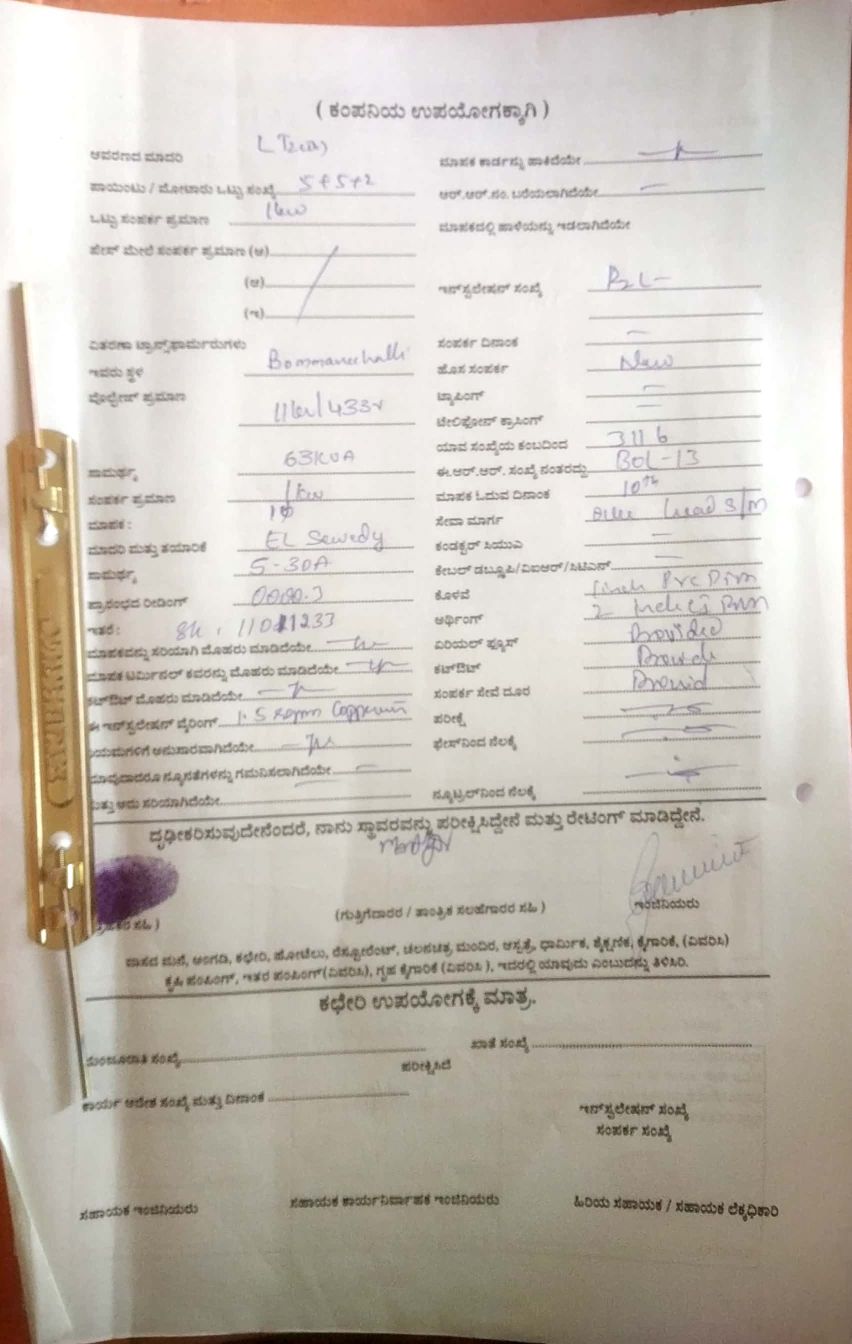 ( ಕಂಪನಿಯ ಉಪಯೋಗಕ್ಕಾಗಿ )
ಆವರಣದ ಮಾದರಿ LT2(a)
ಮಾಪಕ ಕಾರ್ಡನ್ನು ಹಾಕಿದೆಯೇ
ಪಾಯಿಂಟು / ಮೋಟಾರು ಒಟ್ಟು ಸಂಖ್ಯೆ 5+5+2
ಆರ್.ಆರ್.ನಂ. ಬರೆಯಲಾಗಿದೆಯೇ —
ಒಟ್ಟು ಸಂಪರ್ಕ ಪ್ರಮಾಣ 1kw
ಮಾಪಕದಲ್ಲಿ ಹಾಳೆಯನ್ನು ಇಡಲಾಗಿದೆಯೇ
ಫೇಸ್ ಮೇಲೆ ಸಂಪರ್ಕ ಪ್ರಮಾಣ (ಅ)
(ಆ)
(ಇ)
ಇನ್‌ಸ್ಟಲೇಷನ್ ಸಂಖ್ಯೆ
ವಿತರಣಾ ಟ್ರಾನ್ಸ್‌ಫಾರ್ಮರುಗಳು
ಸಂಪರ್ಕ ದಿನಾಂಕ —
ಇವರು ಸ್ಥಳ Bommanechalli
ಹೊಸ ಸಂಪರ್ಕ New
ವೊಲ್ಟೇಜ್ ಪ್ರಮಾಣ 11kv/433v
ಟ್ಯಾಪಿಂಗ್ —
ಟೆಲಿಫೋನ್ ಕ್ರಾಸಿಂಗ್ —
ಯಾವ ಸಂಖ್ಯೆಯ ಕಂಬದಿಂದ 3116
ಸಾಮರ್ಥ್ಯ 63KVA
ಈ.ಆರ್.ಆರ್. ಸಂಖ್ಯೆ ನಂತರದ್ದು BOL-13
ಸಂಪರ್ಕ ಪ್ರಮಾಣ 1kw
ಮಾಪಕ ಓದುವ ದಿನಾಂಕ 10th
ಮಾಪಕ : 1ϕ
ಸೇವಾ ಮಾರ್ಗ head S/M
ಮಾದರಿ ಮತ್ತು ತಯಾರಿಕೆ EL Sewedy
ಕಂಡಕ್ಟರ್ ಸಿಯುಎ —
ಸಾಮರ್ಥ್ಯ 5-30A
ಕೇಬಲ್ ಡಬ್ಲ್ಯೂಪಿ/ವಿಐಆರ್/ಸಿಟಿಎಸ್ —
ಪ್ರಾರಂಭದ ರೀಡಿಂಗ್ 0000.3
ಕೊಳವೆ 1 inch PVC
ಇತರೆ :
ಅರ್ಥಿಂಗ್ 2
ಮಾಪಕವನ್ನು ಸರಿಯಾಗಿ ಮೊಹರು ಮಾಡಿದೆಯೇ
ಏರಿಯಲ್ ಫ್ಯೂಸ್ Provided
ಮಾಪಕ ಟರ್ಮಿನಲ್ ಕವರನ್ನು ಮೊಹರು ಮಾಡಿದೆಯೇ
ಕಟ್‌ಔಟ್ Provide
ಕಟ್‌ಔಟ್ ಮೊಹರು ಮಾಡಿದೆಯೇ
ಸಂಪರ್ಕ ಸೇವೆ ದೂರ Provid
ಈ ಇನ್‌ಸ್ಟಲೇಷನ್ ವೈರಿಂಗ್ 1.5 sqmm
ಪರೀಕ್ಷೆ
ನಿಯಮಗಳಿಗೆ ಅನುಸಾರವಾಗಿದೆಯೇ
ಫೇಸ್‌ನಿಂದ ನೆಲಕ್ಕೆ
ಯಾವುದಾದರೂ ನ್ಯೂನತೆಗಳನ್ನು ಗಮನಿಸಲಾಗಿದೆಯೇ
ಮತ್ತು ಅದು ಸರಿಯಾಗಿದೆಯೇ
ನ್ಯೂಟ್ರಲ್‌ನಿಂದ ನೆಲಕ್ಕೆ
ದೃಢೀಕರಿಸುವುದೇನೆಂದರೆ, ನಾನು ಸ್ಥಾವರವನ್ನು ಪರೀಕ್ಷಿಸಿದ್ದೇನೆ ಮತ್ತು ರೇಟಿಂಗ್ ಮಾಡಿದ್ದೇನೆ.
ಸಹಿ )
(ಗುತ್ತಿಗೆದಾರರ / ತಾಂತ್ರಿಕ ಸಲಹೆಗಾರರ ಸಹಿ )
ಇಂಜಿನಿಯರು
ವಾಸದ ಮನೆ, ಅಂಗಡಿ, ಕಛೇರಿ, ಹೋಟೆಲು, ರೆಸ್ಟೋರೆಂಟ್, ಚಲನಚಿತ್ರ ಮಂದಿರ, ಆಸ್ಪತ್ರೆ, ಧಾರ್ಮಿಕ, ಶೈಕ್ಷಣಿಕ, ಕೈಗಾರಿಕೆ, (ವಿವರಿಸಿ)
ಕೃಷಿ ಪಂಪಿಂಗ್, ಇತರ ಪಂಪಿಂಗ್(ವಿವರಿಸಿ), ಗೃಹ ಕೈಗಾರಿಕೆ (ವಿವರಿಸಿ ), ಇದರಲ್ಲಿ ಯಾವುದು ಎಂಬುದನ್ನು ತಿಳಿಸಿರಿ.
ಕಛೇರಿ ಉಪಯೋಗಕ್ಕೆ ಮಾತ್ರ.
ಮಂಜೂರಾತಿ ಸಂಖ್ಯೆ
ಖಾತೆ ಸಂಖ್ಯೆ
ಪರೀಕ್ಷಿಸಿದೆ
ಕಾರ್ಯ ಆದೇಶ ಸಂಖ್ಯೆ ಮತ್ತು ದಿನಾಂಕ
ಇನ್‌ಸ್ಟಲೇಷನ್ ಸಂಖ್ಯೆ
ಸಂಪರ್ಕ ಸಂಖ್ಯೆ
ಸಹಾಯಕ ಇಂಜಿನಿಯರು
ಸಹಾಯಕ ಕಾರ್ಯನಿರ್ವಾಹಕ ಇಂಜಿನಿಯರು
ಹಿರಿಯ ಸಹಾಯಕ / ಸಹಾಯಕ ಲೆಕ್ಕಧಿಕಾರಿ